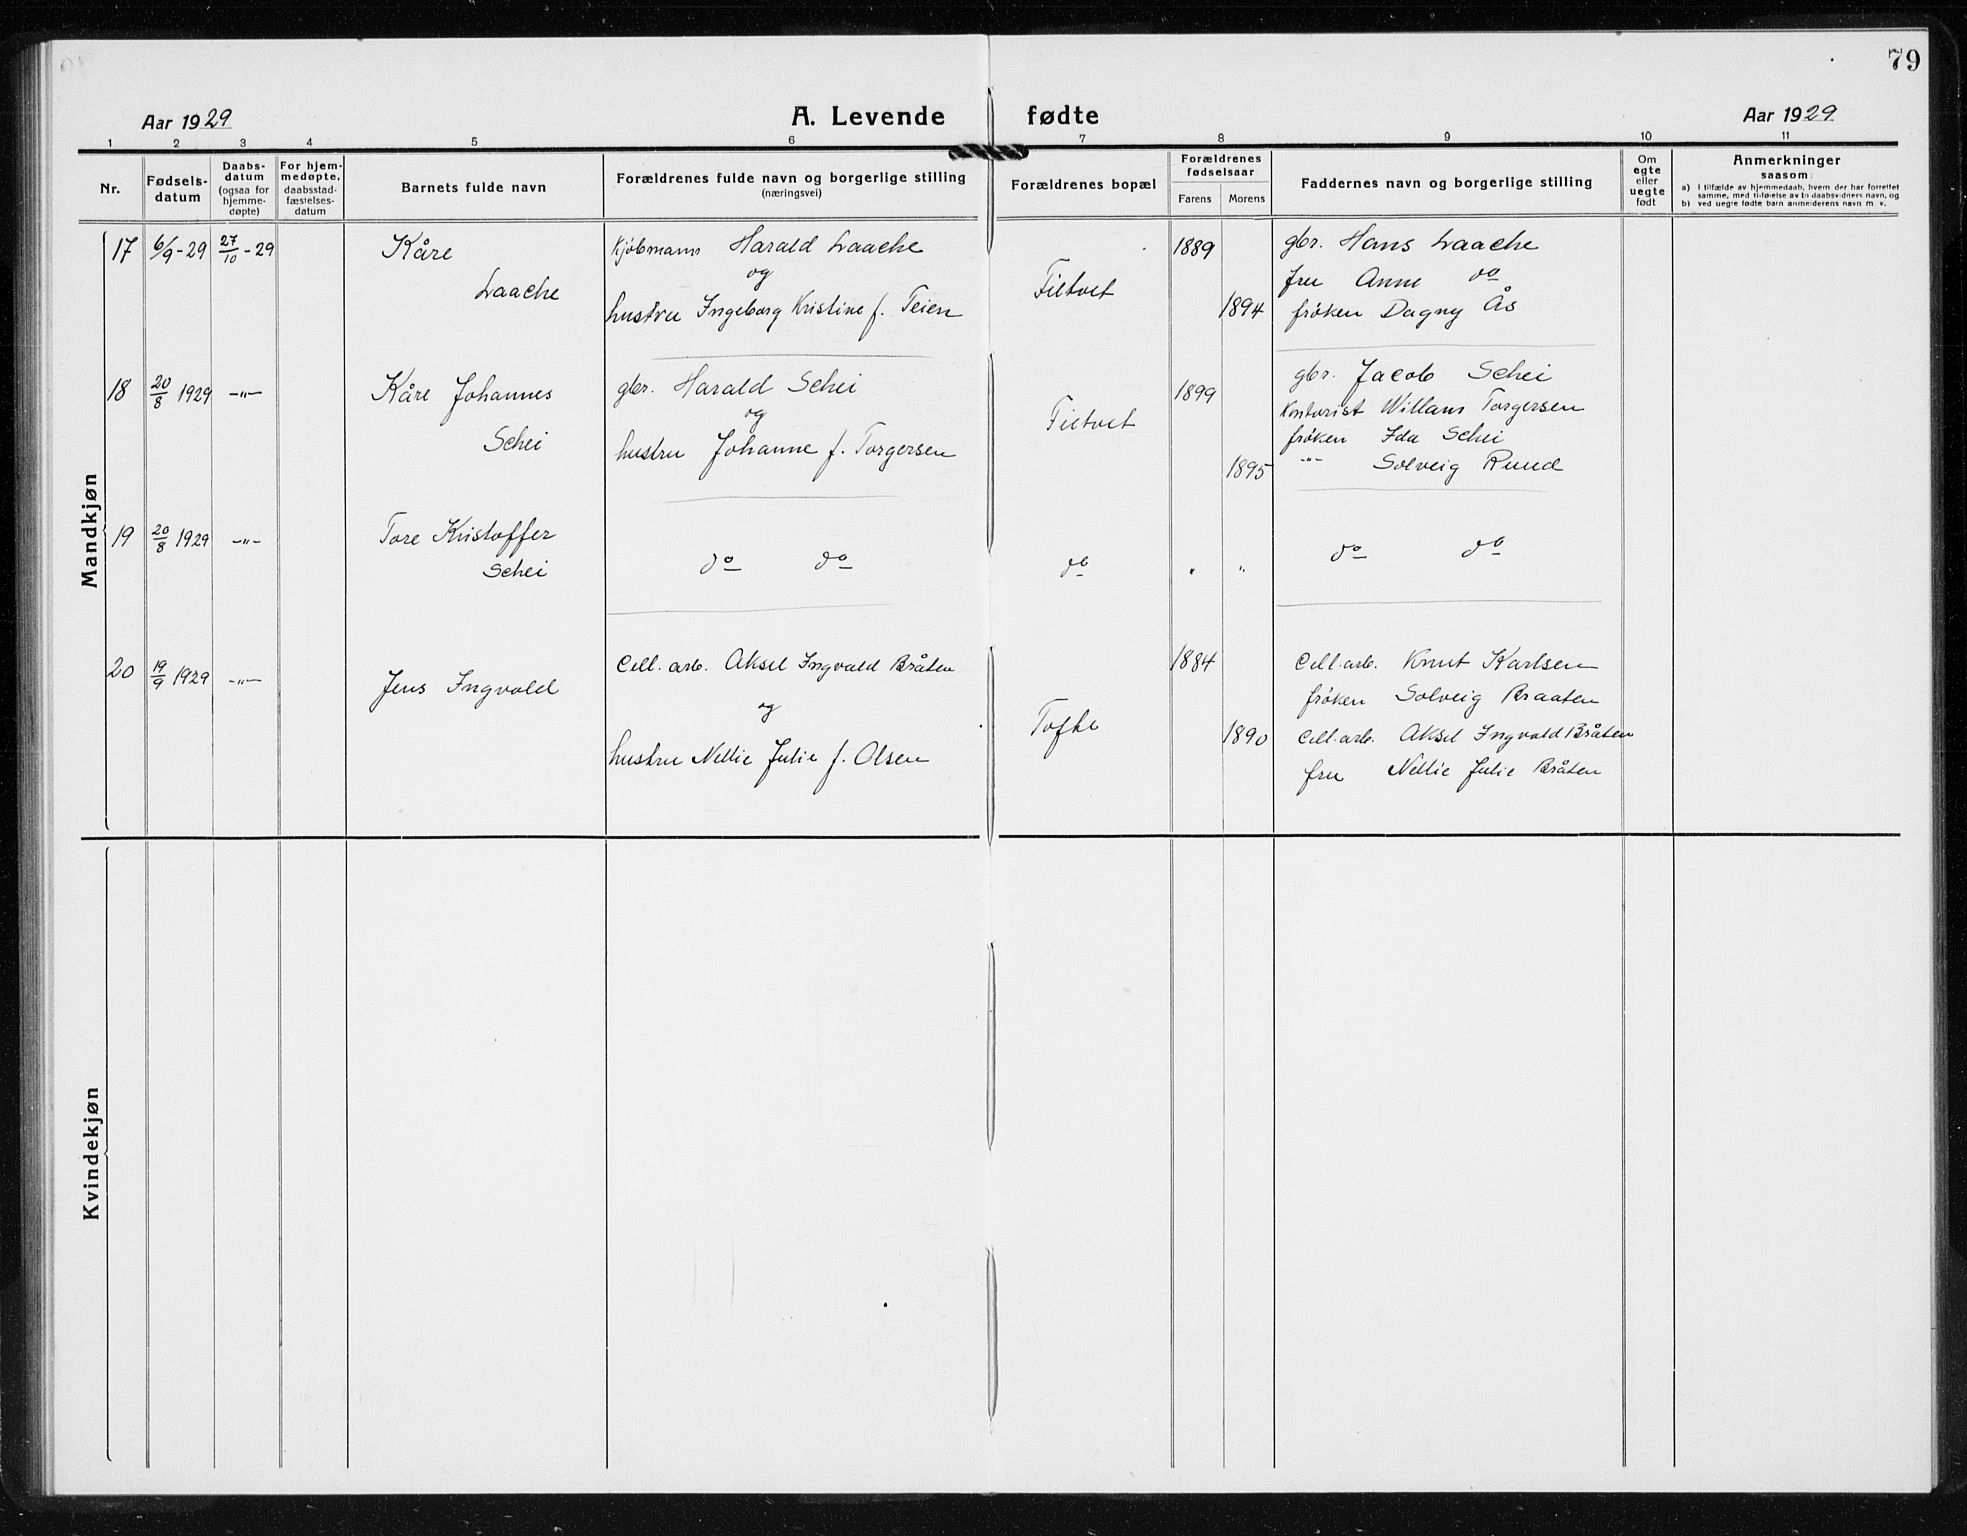 79
Aar 1929
A. Levende fødte
Aar 1929.
1 2 3 4 5 6 7 8 9 10 11
Nr.
Fødsels-
datum
Daabs-
datum
(ogsaa for
hjemme-
døpte)
For hjem-
medøpte,
daabsstad-
fæstelses-
datum
Barnets fulde navn
Forældrenes fulde navn og borgerlige stilling
(næringsvei)
Forældrenes bopæl
Forældrenes
fødselsaar
Farens Morens
Faddernes navn og borgerlige stilling
Om
egte
eller
uegte
født
Anmerkninger
saasom:
a) i tilfælde av hjemmedaab, hvem der har forrettet
samme, med tilføielse av to daabsvidners navn, og
b) ved uegte fødte barn anmelderens navn m. v.
Mandkjøn
17 6/9-29 27/10-29
Kåre
Laache
Kjøbmann Harald Laache
og
hustru Ingeborg Kristine f. Teien
Filtvet
1889
1894
gbr. Hans Laache
fru Anne do
fröken Dagny Ås
18 20/8 1929 -"-
Kåre Johannes
Schei
gbr. Harald Schei
og
hustru Johanne f. Torgersen
Filtvet
1899
1895
gbr. Jacob Schei
Kontorist Willam Torgersen
fröken Ida Schei
-"- Solveig Ruud
19 20/8 1929 -"-
Tore Kristoffer
Schei
do do
do
" "
do do
20 19/9 1929 -"-
Jens Ingvald
Cell. arb. Aksel Ingvald Bråten
og
hustru Nellie Julie f. Olsen
Tofte
1884
1890
Cell. arb. Knut Karlsen
fröken Solveig Braaten
Cell. arb. Aksel Ingvald Bråten
fru Nellie Julie Bråten
Kvindekjøn